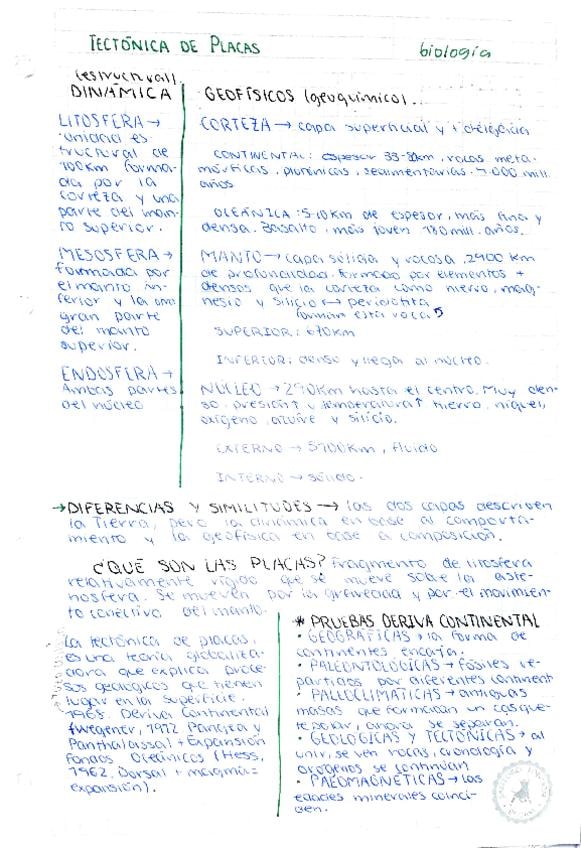 TECTÓNICA DE PLACAS
biología
(estructural)
DINÁMICA
LITOSFERA →
unidad es
tructural de
100Km forma-
da por la
corteza y una
parte del man-
to superior.
MESOSFERA →
formada por
el manto in-
ferior y la
gran parte
del manto
superior.
ENDOSFERA →
Ambas partes
del núcleo
GEOFÍSICOS (geoquímico).
CORTEZA → capa superficial y + delgada
CONTINENTAL: espesor rocas meta-
mórficas, plutónicas, sedimentarias. mill.
años
OCEÁNICA: 5-10Km de espesor, más fina y
densa. Basalto, más joven mill. años.
MANTO → capa sólida y rocosa. 2900 Km
de profundidad. Formado por elementos +
densos que la corteza como hierro, mag-
nesio y silicio → peridotita
forman esta roca
SUPERIOR: 670Km
INFERIOR: denso y llega al núcleo.
NÚCLEO → hasta el centro. Muy den-
so, presión↑ y temperatura↑ hierro, níquel,
oxígeno, azufre y silicio.
EXTERNO → fluido
INTERNO → sólido.
→ DIFERENCIAS Y SIMILITUDES → las dos capas describen
la Tierra, pero la dinámica en base al comporta-
miento y la geofísica en base a composición.
¿QUÉ SON LAS PLACAS? Fragmento de litosfera
relativamente rígido que se mueve sobre la aste-
nosfera. Se mueven por la gravedad y por el movimien-
to convectivo del manto.
La tectónica de placas,
es una teoría globaliza-
dora que explica proce-
sos geológicos que tienen
lugar en la superficie.
Deriva Continental
(Wegener, Pangea y
Panthalassa) + Expansión
Fondos Oceánicos (Hess,
1962, Dorsal + magma =
expansión).
* PRUEBAS DERIVA CONTINENTAL
• GEOGRÁFICAS → la forma de
continentes encaja.
• PALEONTOLÓGICAS → fósiles re-
partidos por diferentes continent
• PALEOCLIMÁTICAS → antiguas
masas que formaban un casque-
te polar, ahora se separan.
• GEOLÓGICAS Y TECTÓNICAS → al
unir, se ven rocas, cronología y
orógenos se continúan
• PALEOMAGNÉTICAS → las
edades minerales coinci-
den.